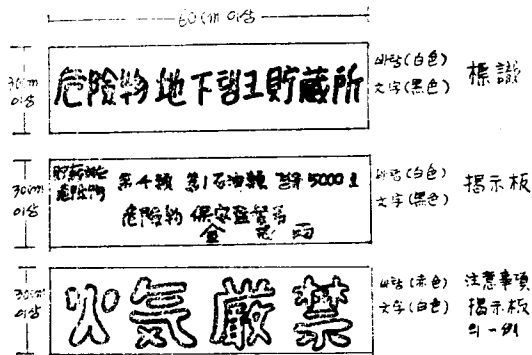 60cm 이상
30cm 이상
危險物 地下탱크 貯蔵所
바탕(白色)
文字(黑色)
標識
30cm 이상
第4類 第1石油類 5000ℓ
危險物 保安監督者
金
바탕(白色)
文字(黑色)
揭示板
30cm 이상
火気厳禁
바탕(赤色)
文字(白色)
注意事項
揭示板
의 一例